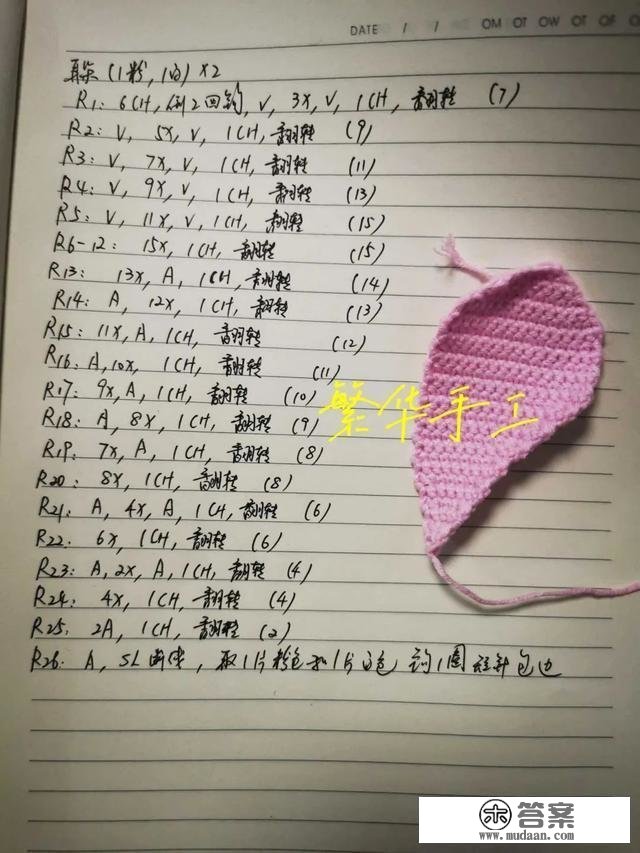 DATE / /
耳朵(1粉,1白)×2
R1: 6CH, 倒2回钩, V, 3X, V, 1CH, 翻转 (7)
R2: V, 5X, V, 1CH, 翻转 (9)
R3: V, 7X, V, 1CH, 翻转 (11)
R4: V, 9X, V, 1CH, 翻转 (13)
R5: V, 11X, V, 1CH, 翻转 (15)
R6-12: 15X, 1CH, 翻转 (15)
R13: 13X, A, 1CH, 翻转 (14)
R14: A, 12X, 1CH, 翻转 (13)
R15: 11X, A, 1CH, 翻转 (12)
R16: A, 10X, 1CH, 翻转 (11)
R17: 9X, A, 1CH, 翻转 (10)
R18: A, 8X, 1CH, 翻转 (9)
R19: 7X, A, 1CH, 翻转 (8)
R20: 8X, 1CH, 翻转 (8)
R21: A, 4X, A, 1CH, 翻转 (6)
R22: 6X, 1CH, 翻转 (6)
R23: A, 2X, A, 1CH, 翻转 (4)
R24: 4X, 1CH, 翻转 (4)
R25: 2A, 1CH, 翻转 (2)
R26: A, SL断线, 取1片粉色和1片白色 钩1圈短针包边
繁华手工
答案
www.mudaan.com